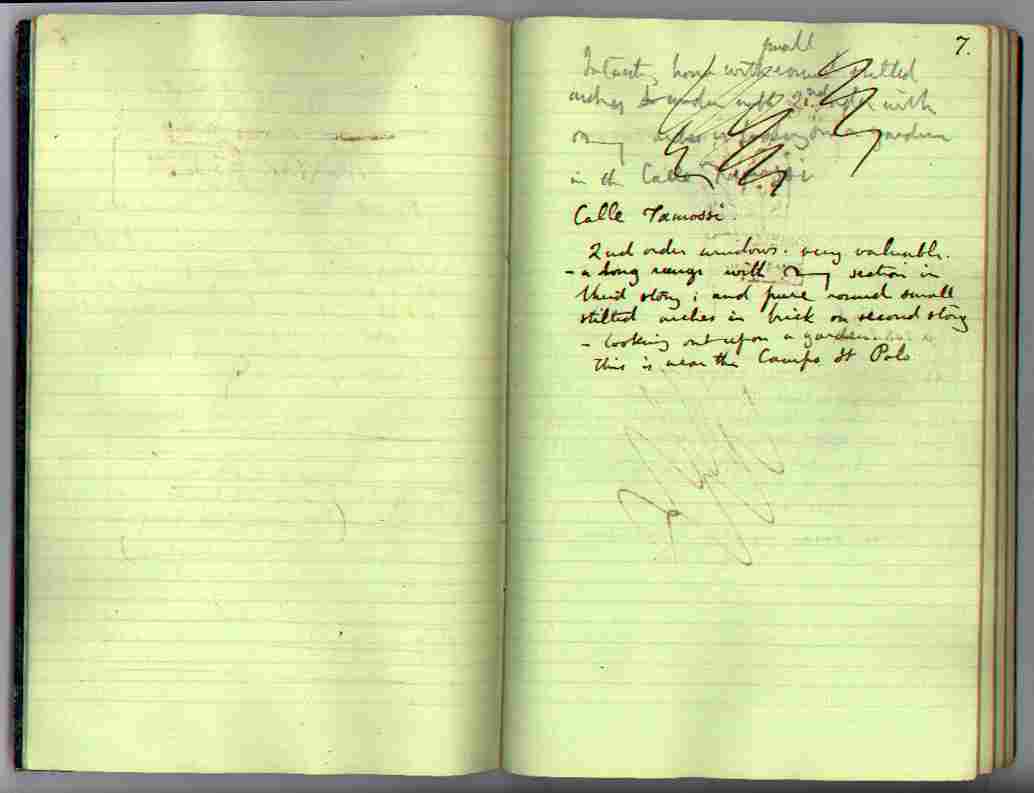 7.
small
Interesting house with round stilted
arches & under with 2nd order with
in the Calle Tamossi
Calle Tamossi.
2nd order windows. very valuable.
- a long range with section in
third story; and pure round small
stilted arches in brick on second story
- looking out upon a garden
This is near the Campo St Polo